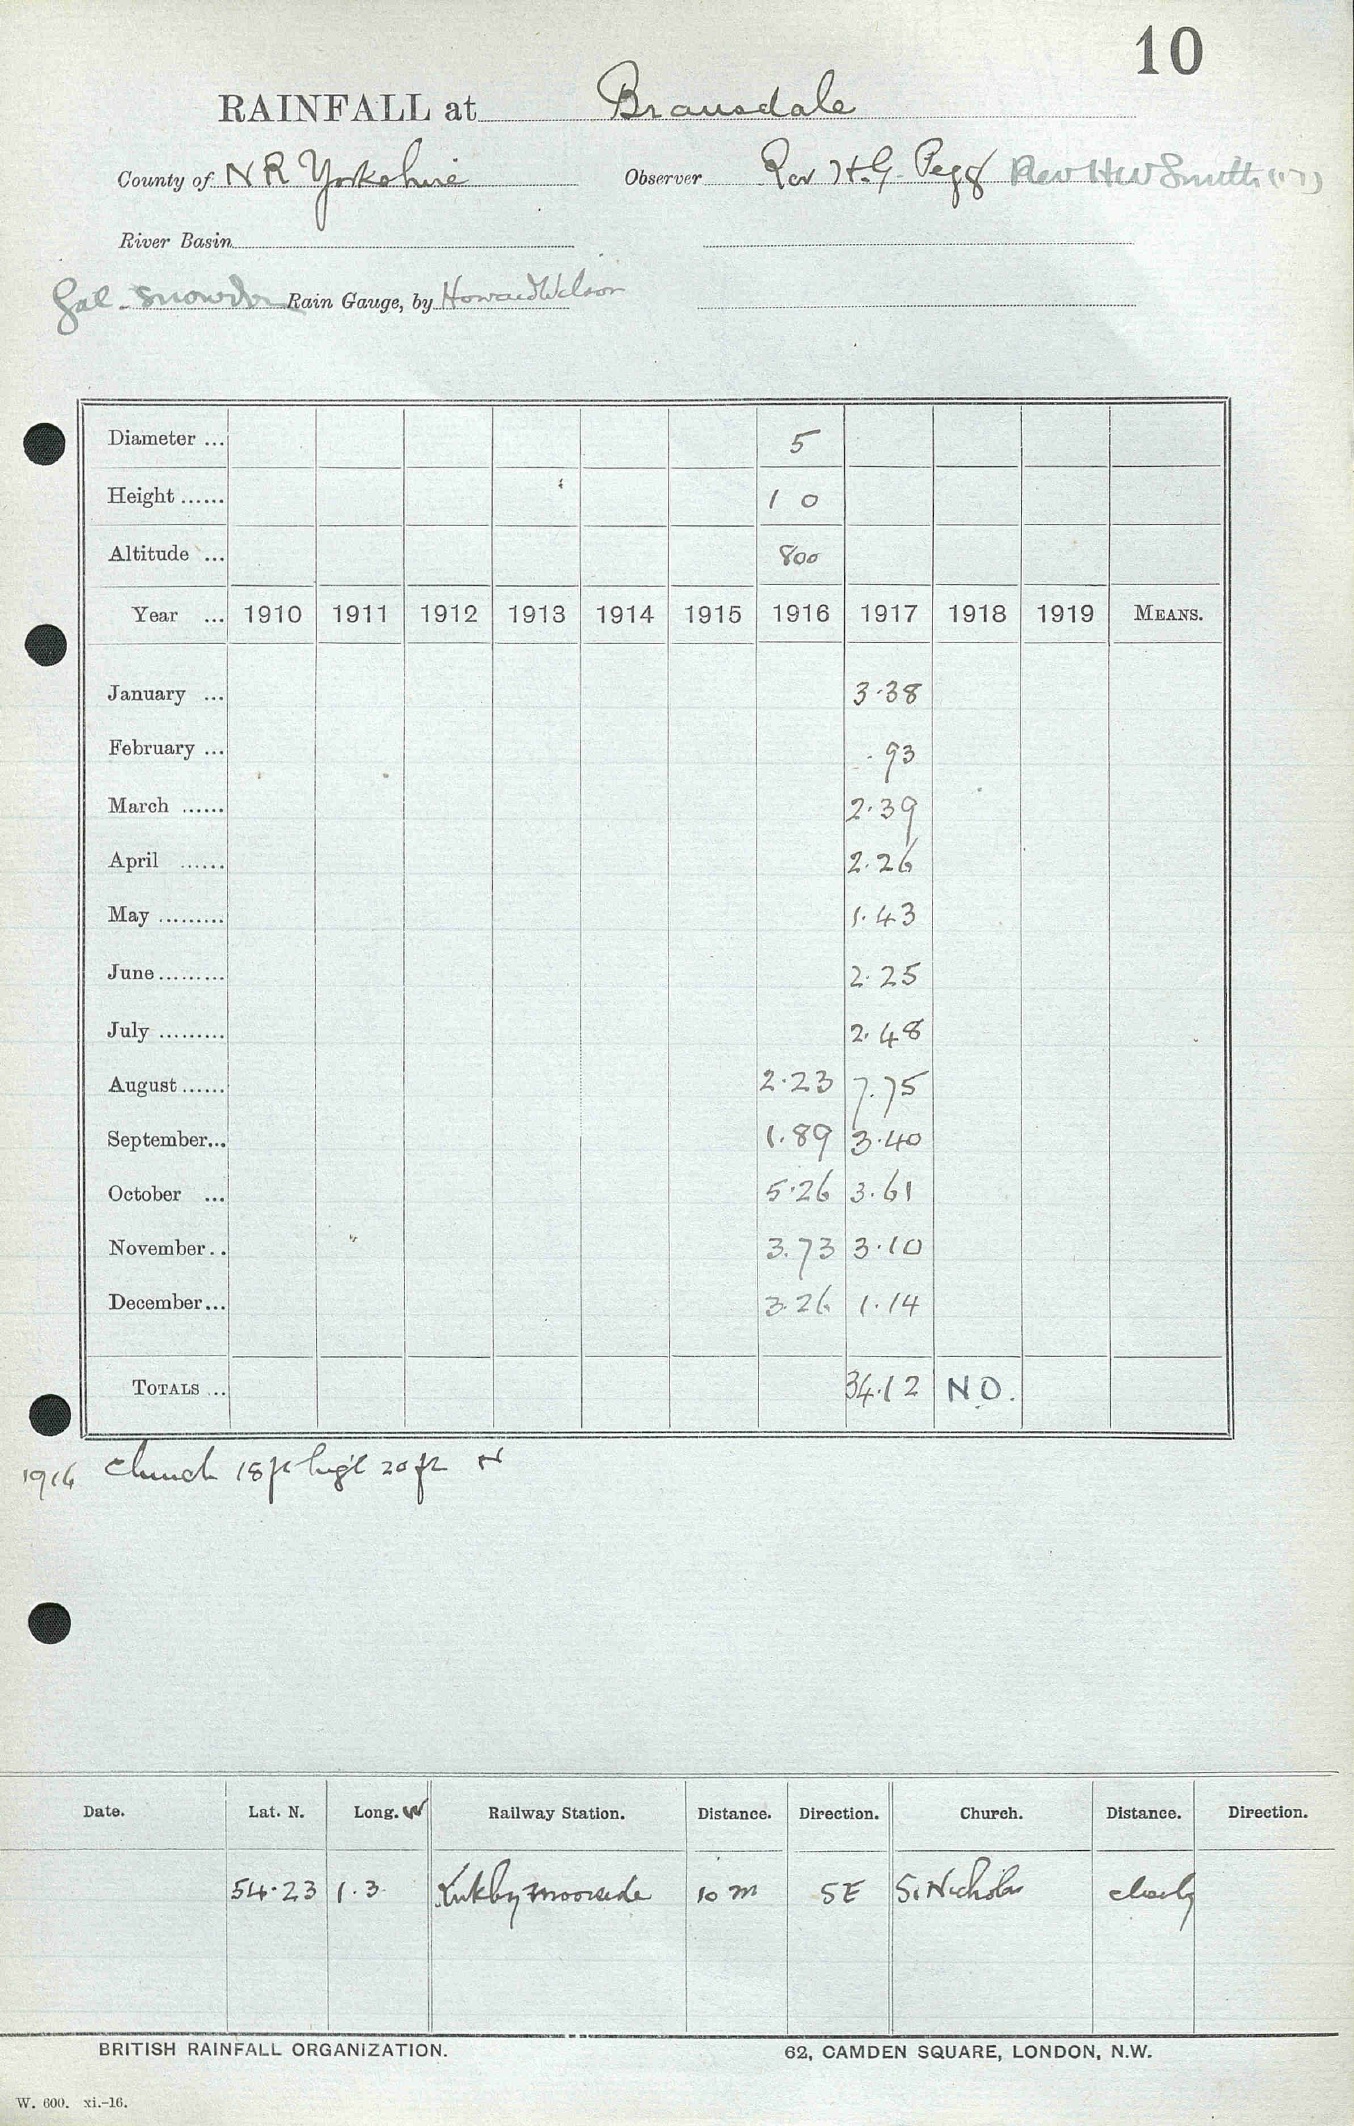 10
RAINFALL at Bransdale
County of N R Yorkshire Observer Rev H. G. Pegg Rev H W Smith ('17)
River Basin
Gal. Snowdon Rain Gauge, by Howard Wilson
Diameter ... 5
Height ...... 1 0
Altitude ... 800
Year ... 1910 1911 1912 1913 1914 1915 1916 1917 1918 1919 MEANS.
January ... 3.38
February ... .93
March ...... 2.39
April ...... 2.26
May ......... 1.43
June ......... 2.25
July ......... 2.48
August ...... 2.23 7.75
September... 1.89 3.40
October ... 5.26 3.61
November .. 3.73 3.10
December... 3.26 1.14
TOTALS ... 34.12 N.O.
1916 Church 18 ft high 20 ft N
Date. Lat. N. Long. W Railway Station. Distance. Direction. Church. Distance. Direction.
54.23 1.3 Kirkbymoorside 10 m SE St Nicholas closely
BRITISH RAINFALL ORGANIZATION. 62, CAMDEN SQUARE, LONDON, N.W.
W. 600. xi.-16.